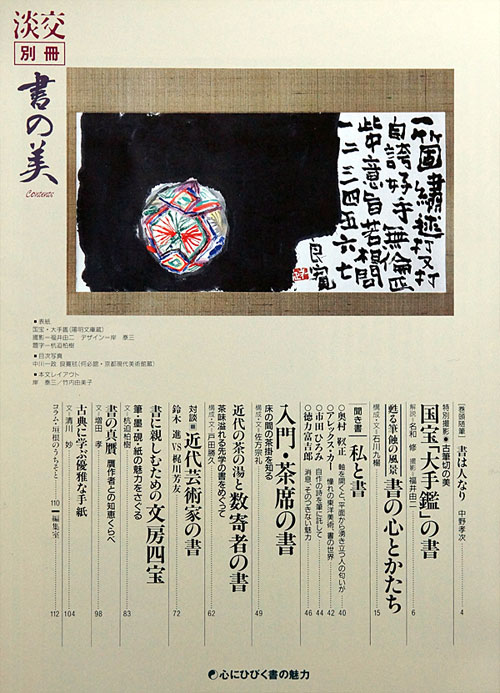 淡交
別冊
書の美
Contents
一箇繍毬打又打
自誇好手無倫匹
此中意旨若相問
一二三四五六七
良寛
■表紙
国宝・大手鑑(陽明文庫蔵)
撮影―福井由二 デザイン―岸 泰三
題字―杭迫柏樹
■目次写真
中川一政 良寛毬(何必館・京都現代美術館蔵)
■本文レイアウト
岸 泰三/竹内由美子
[巻頭随筆] 書は人なり 中野孝次 4
特別撮影●古筆切の美
国宝「大手鑑」の書
解説・名和 修 撮影・福井由二 6
甦る筆蝕の風景 書の心とかたち
構成・文・石川九楊 15
聞き書 私と書
○奥村 靫正 軸を開くと、平面から湧き立つ人の匂いが 40
○アレックス・カー 憧れの東洋美術、書の世界 42
○市田ひろみ 自作の詩を筆に託して 44
○徳力富吉郎 消息、そのつきない魅力 46
入門・茶席の書
床の間の茶掛を知る
構成・文・佐方宗礼 49
近代の茶の湯と数寄者の書
茶味溢れる先学の書をめぐって
構成・文・戸田勝久 62
対談■近代芸術家の書
鈴木 進 VS 梶川芳友 72
書に親しむための文房四宝
筆・墨・硯・紙の魅力をさぐる
文・杭迫柏樹 83
書の真贋 贋作者との知恵くらべ
文・増田 孝 98
古典に学ぶ優雅な手紙
文・清川 妙 104
コラム・垣根のうちそと 110
編集室 112
心にひびく書の魅力